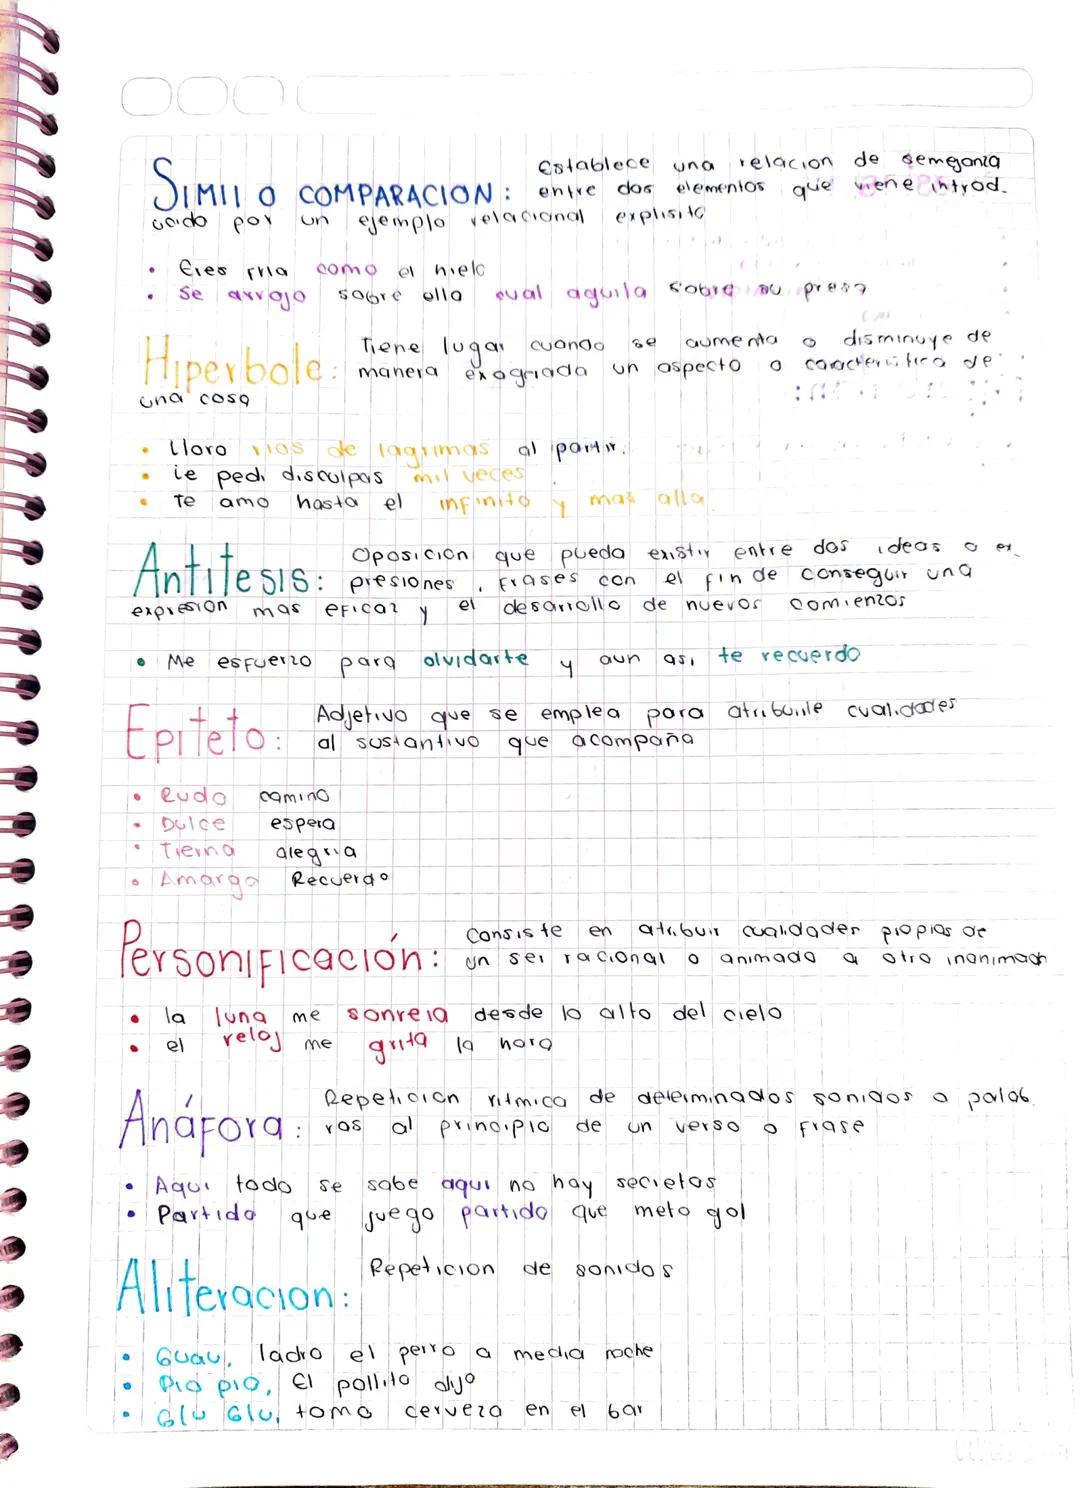 Establece una relacion de semejanza
SIMIL O COMPARACION: entre dos elementos que viene introd-
ucido por un ejemplo relacional explisito
• Eres fria como el hielo
• Se arrojo sobre ella cual aguila sobre su presa
Tiene lugar cuando se aumenta o disminuye de
Hiperbole: manera exagriada un aspecto o caracteristica de
una cosa
• Lloro rios de lagrimas al partir.
• le pedi disculpas mil veces
• Te amo hasta el infinito y mas alla.
Oposicion que pueda existir entre dos ideas o ex-
Antitesis: presiones, frases con el fin de conseguir una
expresion mas eficaz y el desarrollo de nuevos comienzos
• Me esfuerzo para olvidarte y aun asi te recuerdo
Adjetivo que se emplea para atribuirle cualidades
Epiteto: al sustantivo que acompaña
• Rudo camino
• Dulce espera
• Tierna alegria
• Amargo Recuerdo
Consiste en atribuir cualidades propias de
Personificación: un ser racional o animado a otro inanimado
• la luna me sonreia desde lo alto del cielo
• el reloj me grita la hora
Repeticion ritmica de determinados sonidos o palab-
Anáfora: ras al principio de un verso o frase
• Aqui todo se sabe aqui no hay secretos
• Partido que juego partido que meto gol
Repeticion de sonidos
Aliteracion:
• Guau, ladro el perro a media noche
• Pio pio, El pollito dijo
• Glu Glu, tomo cerveza en el bar